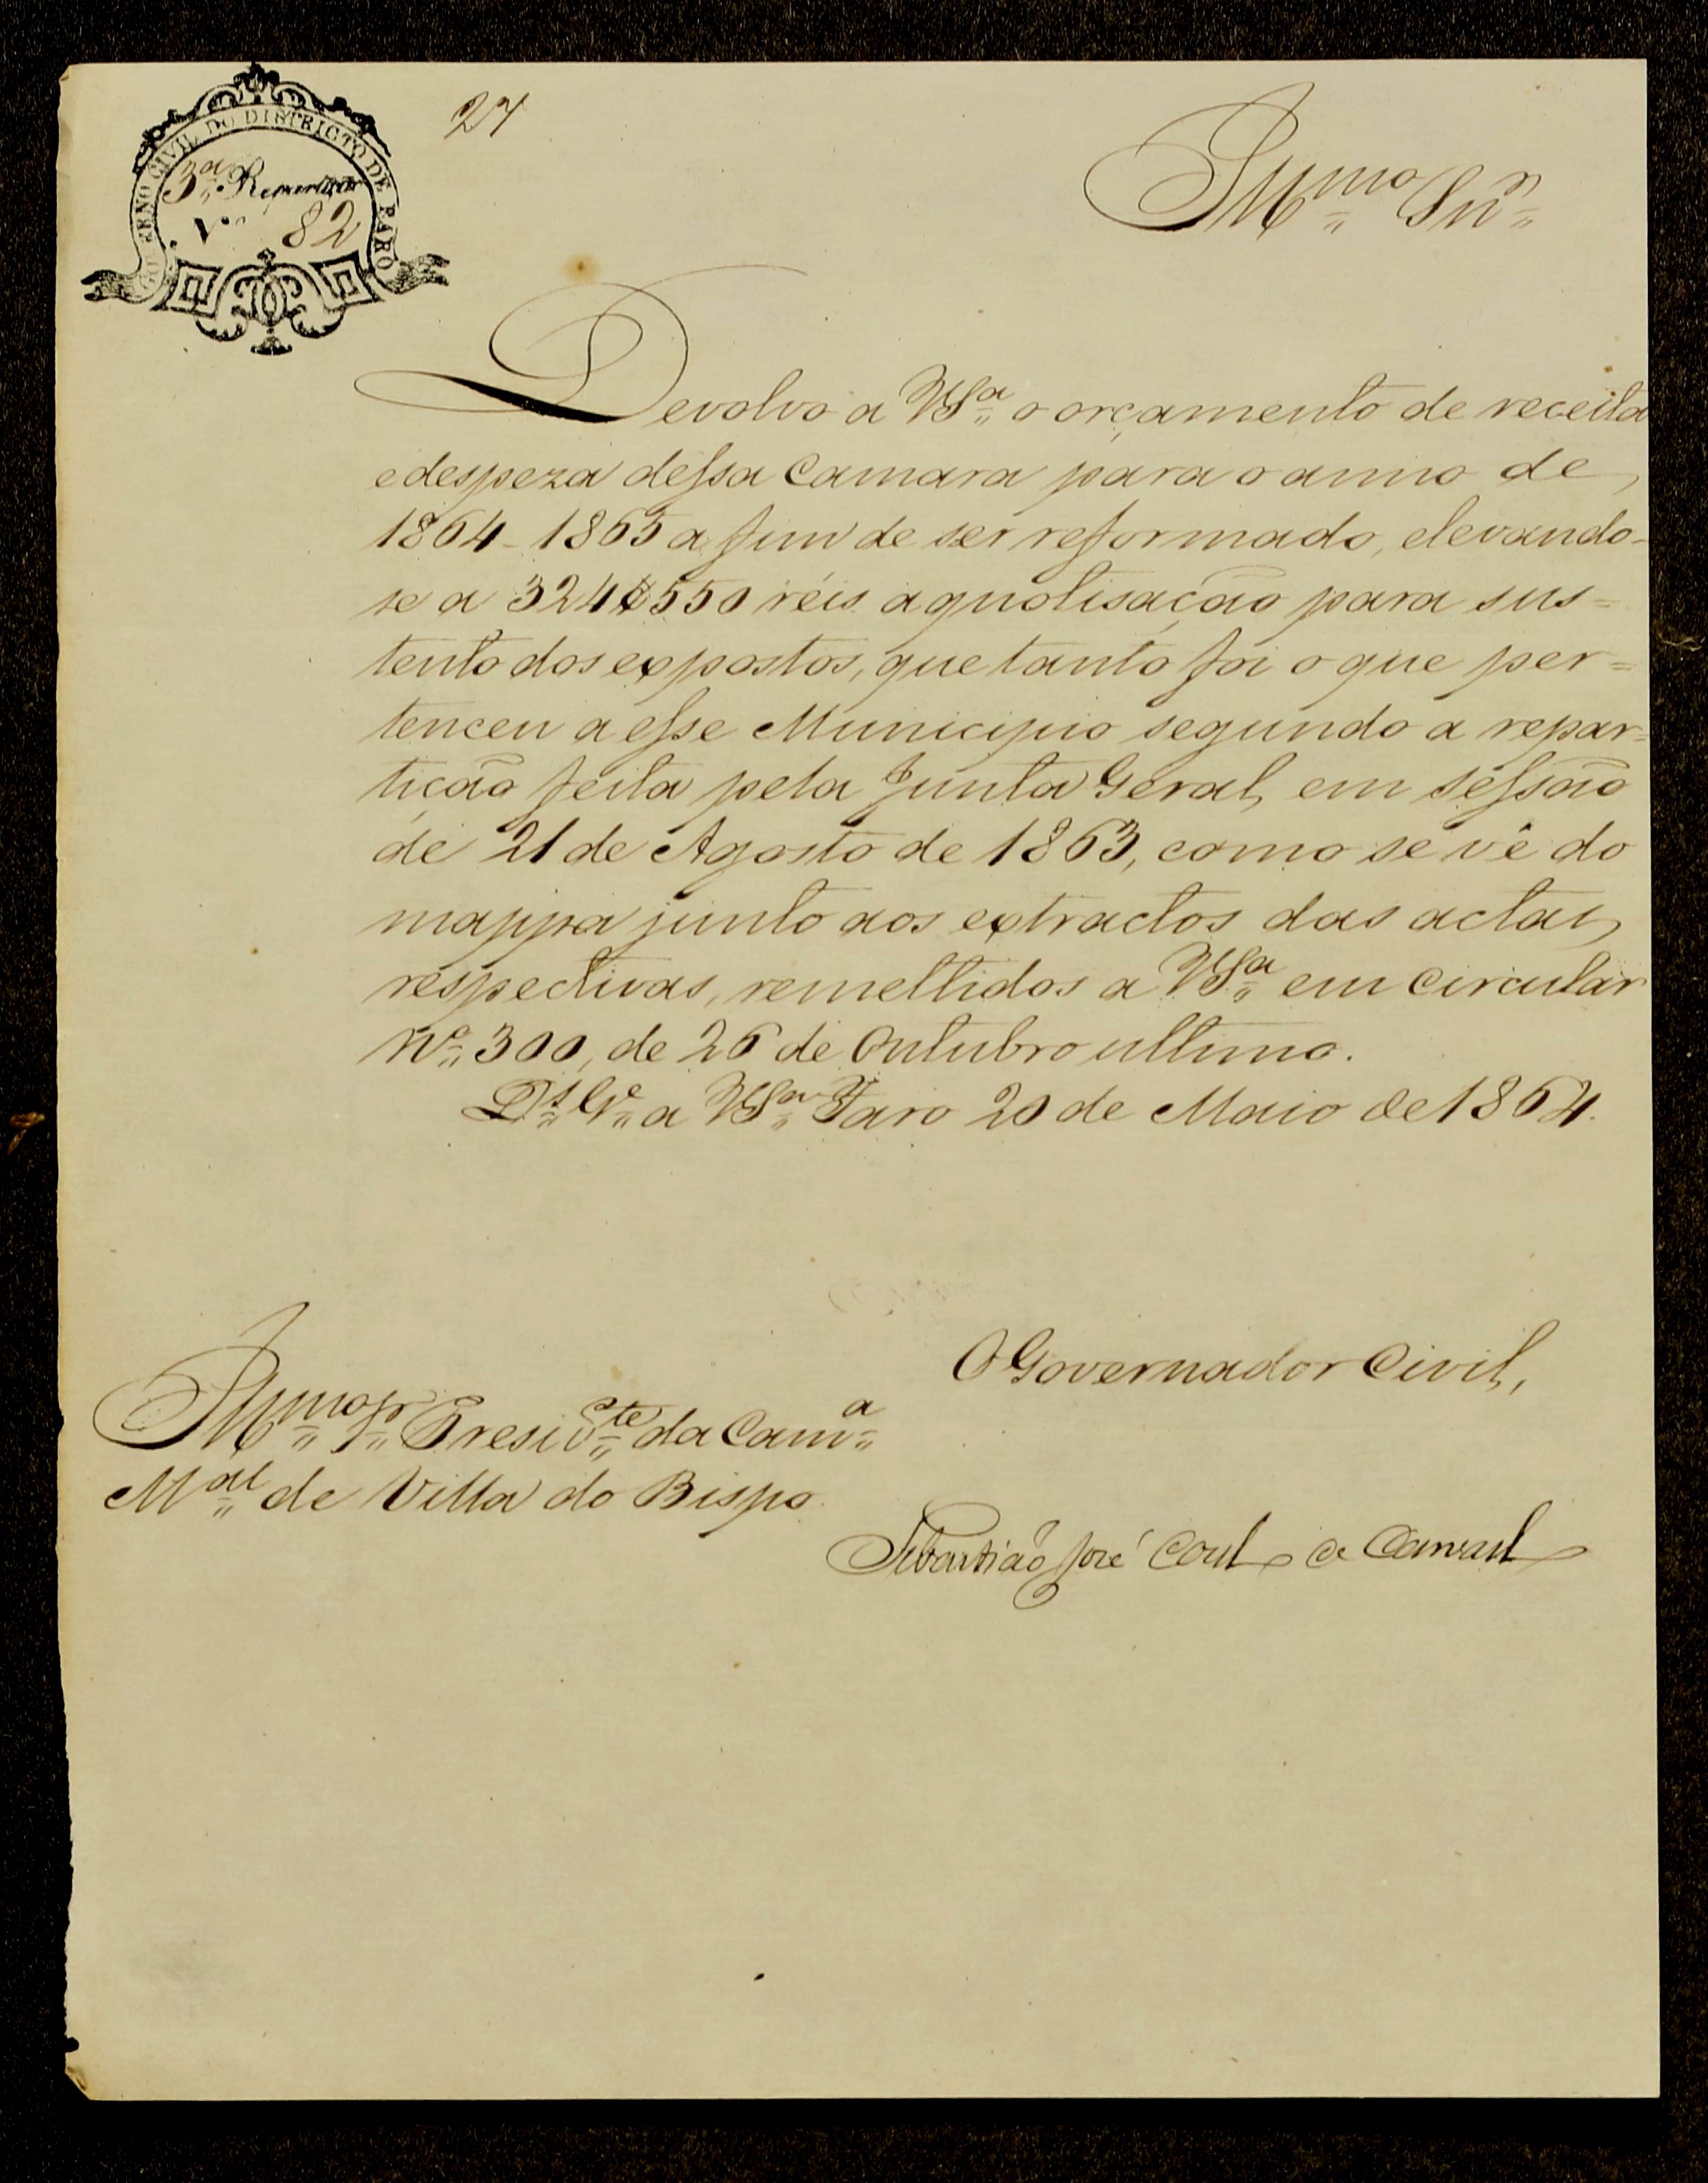 GOVERNO CIVIL DO DISTRICTO DE FARO
3ª Repartição
Nº 82
27
Illmo Snr
Devolvo a VSª o orçamento de receita
e despeza dessa Camara para o anno de
1864-1865 a fim de ser reformado, elevando-
se a 324$550 réis a quotisação para sus=
tento dos expostos, que tanto foi o que per=
tenceu a esse Municipio segundo a repar=
tição feita pela Junta Geral, em sessão
de 21 de Agosto de 1863, como se vê do
mappa junto aos extractos das actas
respectivas, remettidos a VSª em circular
Nº 300, de 26 de Outubro ultimo.
Ds Ge a VSª Faro 20 de Maio de 1864.
O Governador Civil,
Illmo Sr Presidte da Camª
Mal de Villa do Bispo.
Sebastião José de